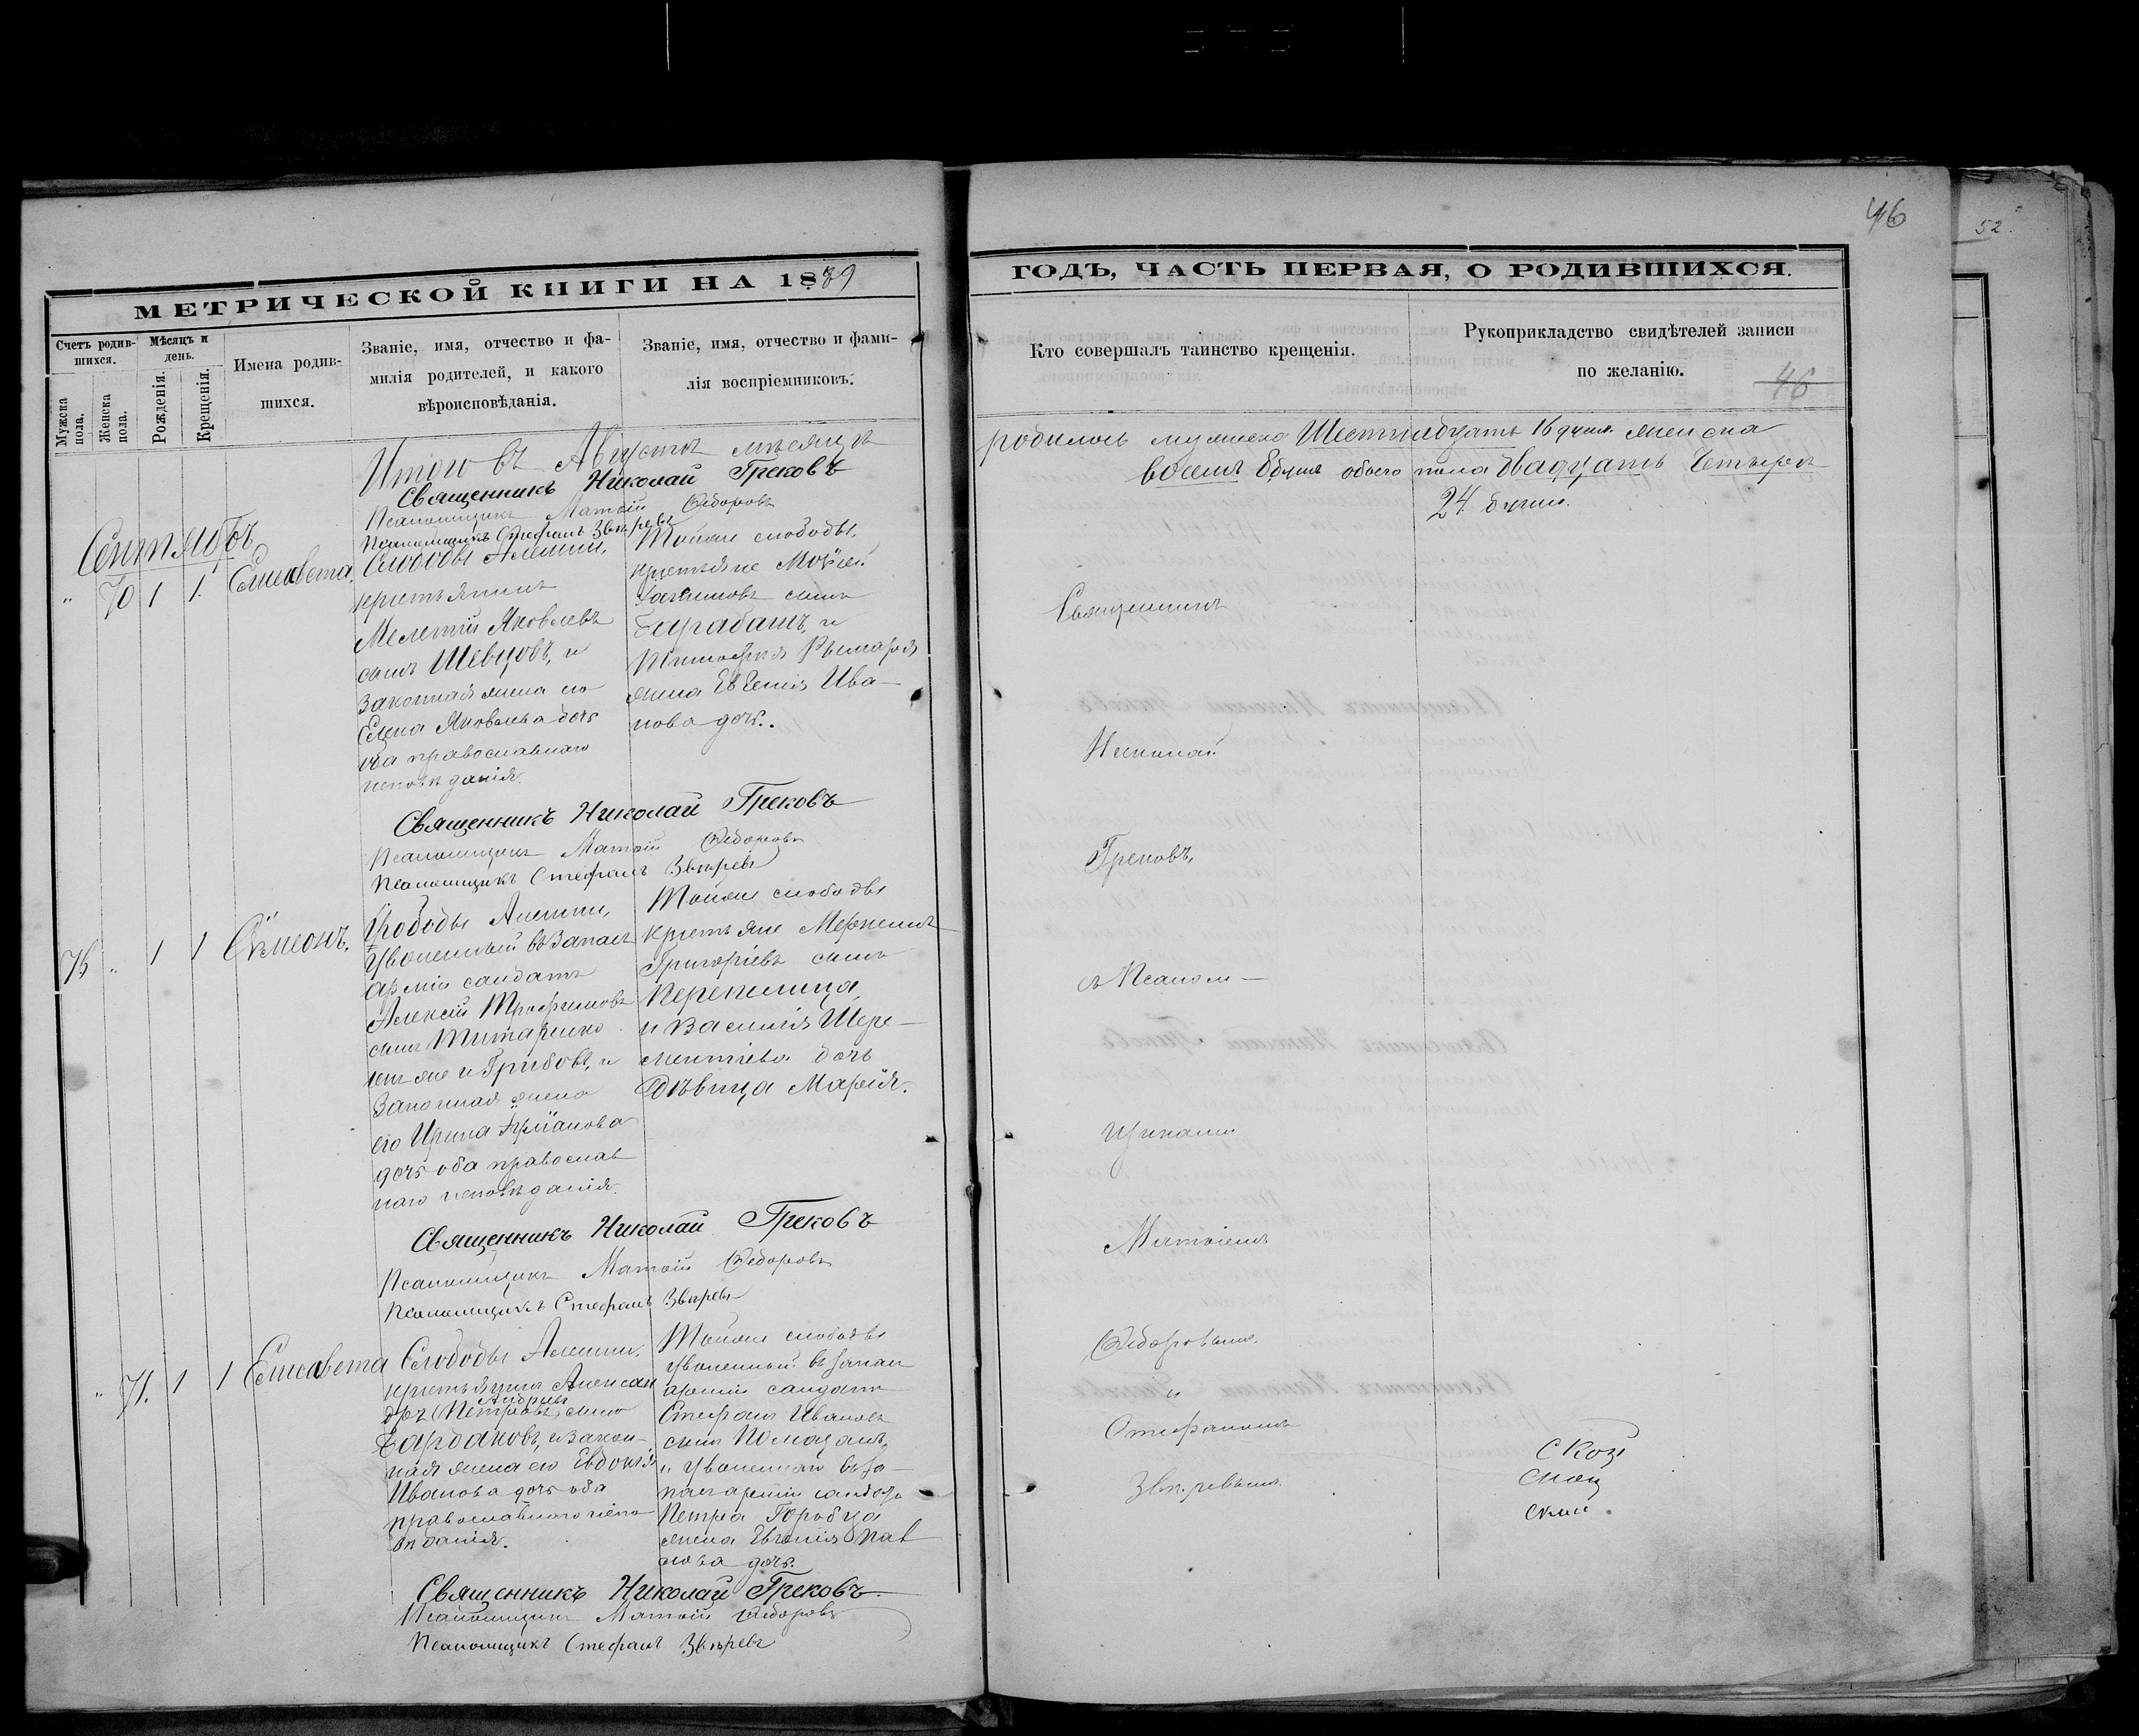 46
52.
МЕТРИЧЕСКОЙ КНИГИ НА 1889
ГОДЪ, ЧАСТЬ ПЕРВАЯ, О РОДИВШИХСЯ.
Счетъ родив-
шихся.
Мужска
пола.
Женска
пола.
Мѣсяцъ и
день.
Рожденія.
Крещенія.
Имена родив-
шихся.
Званіе, имя, отчество и фа-
милія родителей, и какого
вѣроисповѣданія.
Званіе, имя, отчество и фами-
лія воспріемниковъ.
Кто совершалъ таинство крещенія.
Рукоприкладство свидѣтелей записи
по желанію.
46
Итого въ Августѣ мѣсяцѣ
родилось мужеска Шестнадцать 16 душъ женска
восемь 8 душъ обоего пола Двадцать Четыре
24 души.
Священникъ Николай Грековъ
Псаломщикъ Матѳій Ѳедоровъ
Псаломщикъ Стефанъ Звѣревъ
Сентябрь
" 70 1 1. Елисавета.
Слободы Алешки,
крестьянинъ
Мелетій Яковлевъ
сынъ Шевцовъ, и
законная жена его
Елена Яковлева дочь
оба православнаго
исповѣданія.
Тойже слободы,
крестьяне Моѵсей
сынъ
Барабашъ, и
Тимоѳея Рымаря
жена Евгенія Ива-
нова дочь.
Священникъ Николай Грековъ
Псаломщикъ Матѳій Ѳедоровъ
Псаломщикъ Стефанъ Звѣревъ
75 " 1 1 Сѵмеонъ.
Слободы Алешки,
Уволенный въ запасъ
арміи солдатъ
Алексій Трофимовъ
сынъ Титаренко
онъ же и Грибовъ, и
Законная жена
его Ирина
дочь оба православ
наго исповѣданія.
Тойже слободы
крестьяне
Григоріевъ сынъ
Перепелица,
и Василія Шере-
метіева дочь
Дѣвица Марія.
Священникъ Николай Грековъ
Псаломщикъ Матѳій Ѳедоровъ
Псаломщикъ Стефанъ Звѣревъ
" 71. 1 1 Елисавета
Слободы Алешки.
крестьянинъ Алексан
Андреевъ
дръ (Петровъ) сынъ
Бардаковъ, и закон-
ная жена его Евдокія
Иванова дочь оба
православнаго испо
вѣданія.
Тойже слободы
уволенный въ запасъ
арміи солдатъ
Стефанъ Ивановъ
сынъ Помазанъ,
и уволеннаго въ за-
пасъ арміи солдата
Петра Горобца
жена Евгенія Пав
лова дочь.
Священникъ Николай Грековъ
Псаломщикъ Матѳій Ѳедоровъ
Псаломщикъ Стефанъ Звѣревъ
Священникъ
Николай
Грековъ,
съ Псалом-
щиками
Матѳіемъ
Ѳедоровымъ
и
Стефаномъ
Звѣревымъ.